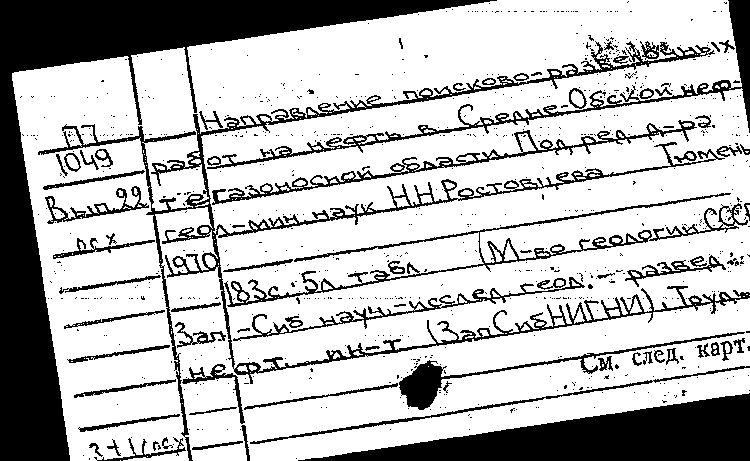 П7
1049
Вып.22
псх
Направление поисково-разведочных
работ на нефть в Средне-Обской неф-
тегазоносной области. Под ред. д-ра
геол-мин. наук Н.Н.Ростовцева. Тюмень
1970
183с.; 5л. табл. (М-во геологии СССР
Зап-Сиб науч.-исслед. геол.-развед.
нефт. ин-т (ЗапСибНИГНИ). Труды
См. след. карт.
3+1(псх)